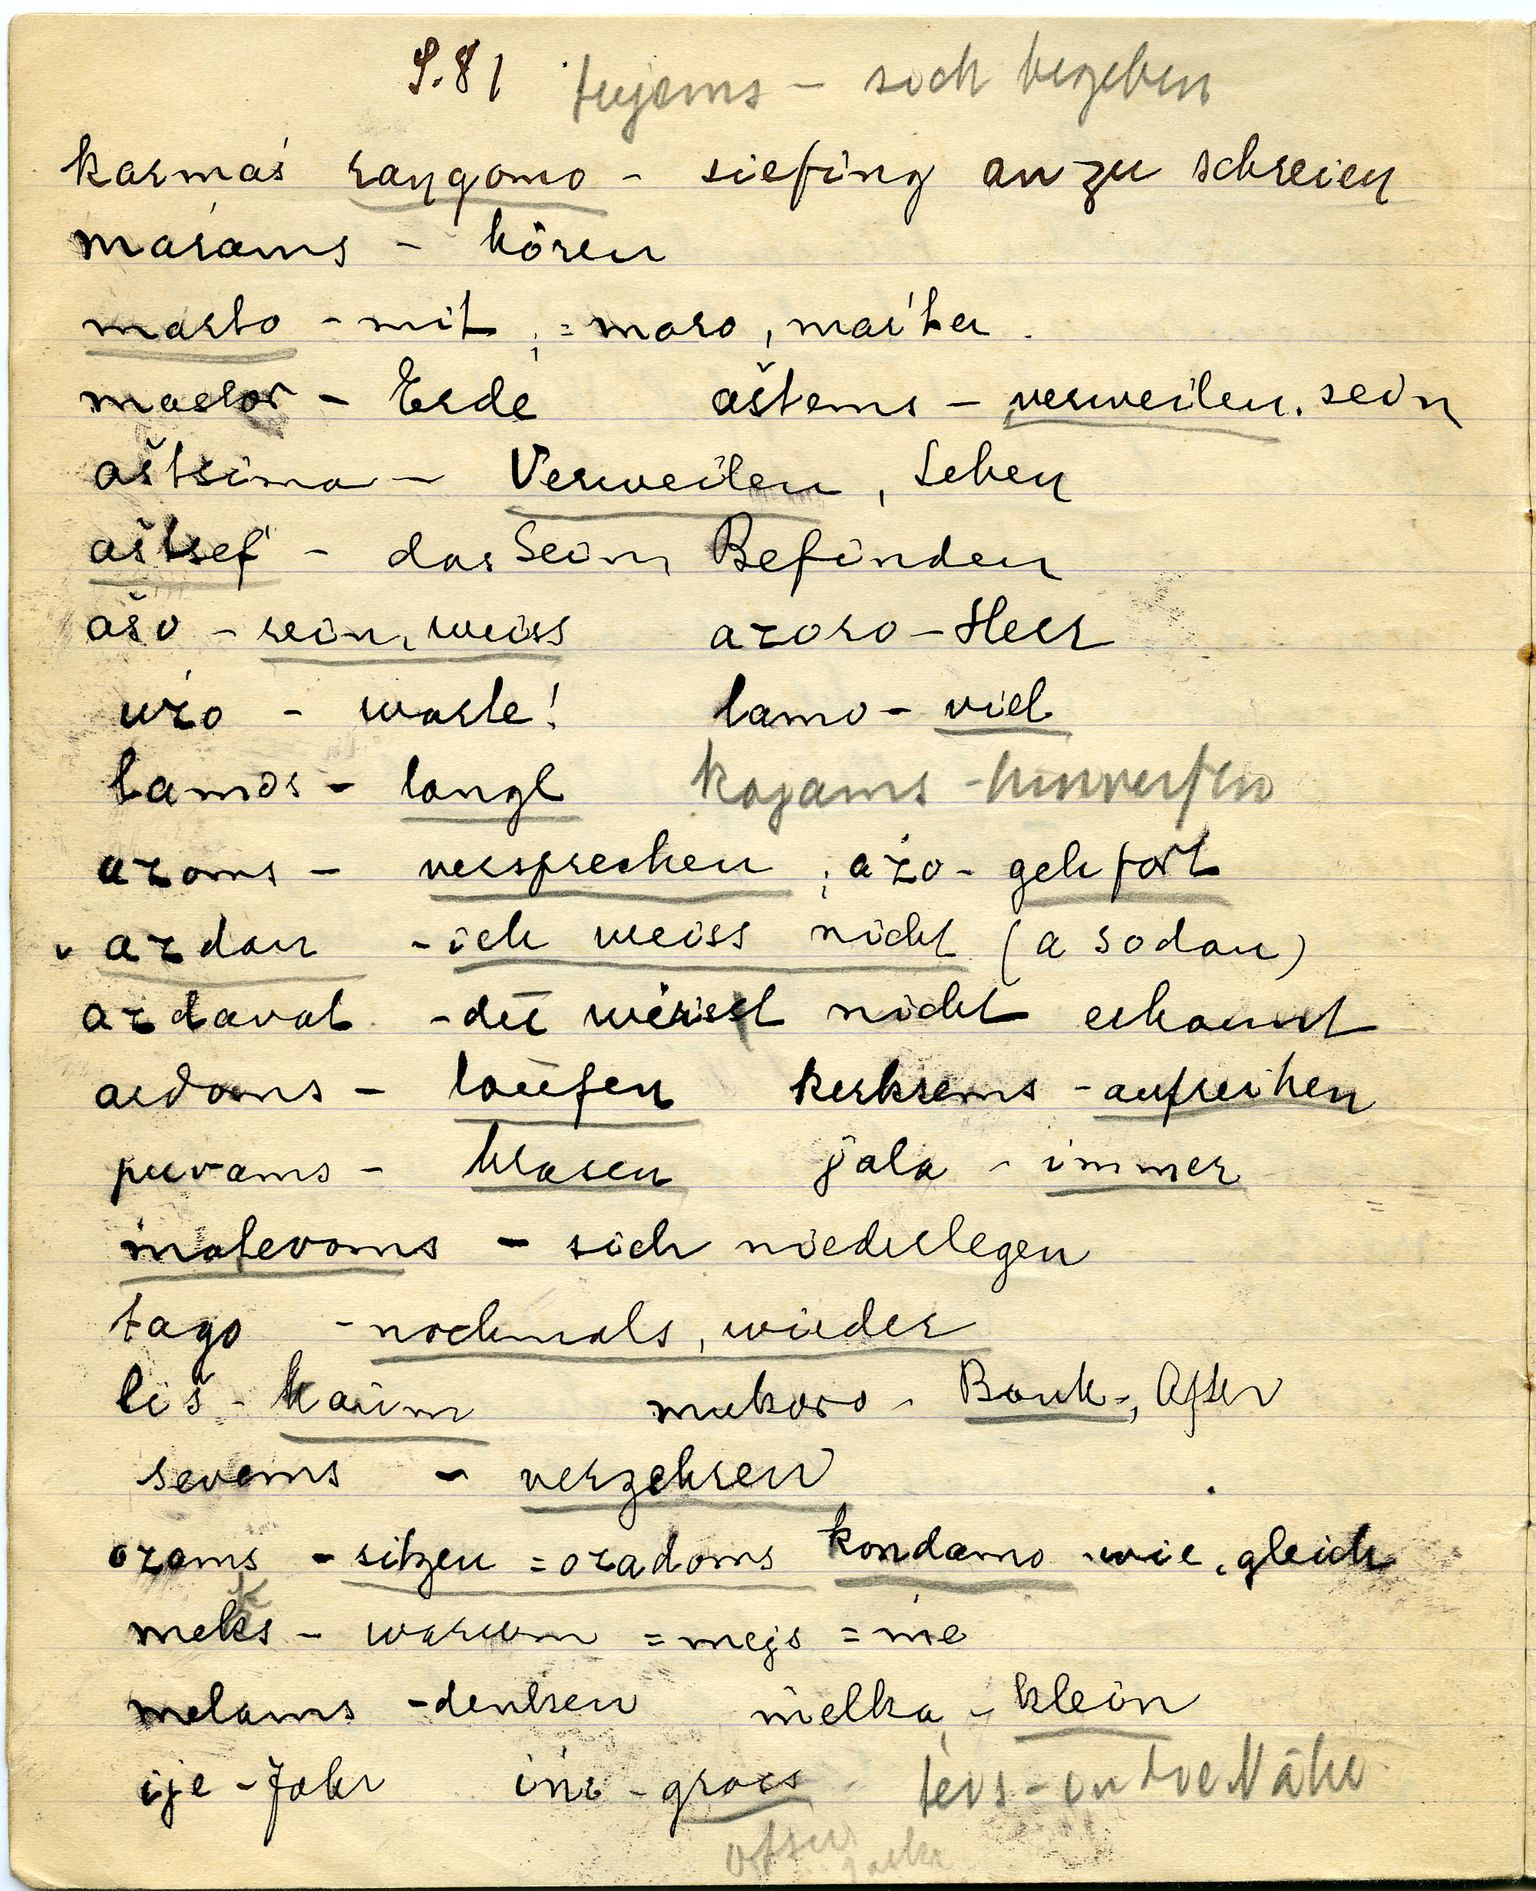 S. 81 tujems - sich begeben
karmaś rangomo - sie fing an zu schreien
maŕams - hören
marto - mit ; = maro, maŕta
mastor - Erde aštems - verweilen, sein
aštsima - Verweilen, Leben
aštsef - das Sein, Befinden
ašo - rein, weiss azoro - Herr
užo - warte! lamo - viel
lamos - langl kajams - hinwerfen
azoms - versprechen ; ažo - geh fort
azdan - ich weiss nicht (a sodan)
azdavat - du wirst nicht erkannt
ardoms - laufen kerksems - aufreihen
puvams - blasen jala - immer
matevoms - sich niederlegen
tago - nochmals, wieder
liš - kaum mukoro - Bank, After
sevems - verzehren
ozams - sitzen = ozadoms kondamo - wie, gleich
meks - warum = mejs = me
melams - denken melka - klein
ije - Jahr ine - gross teis - in die Nähe